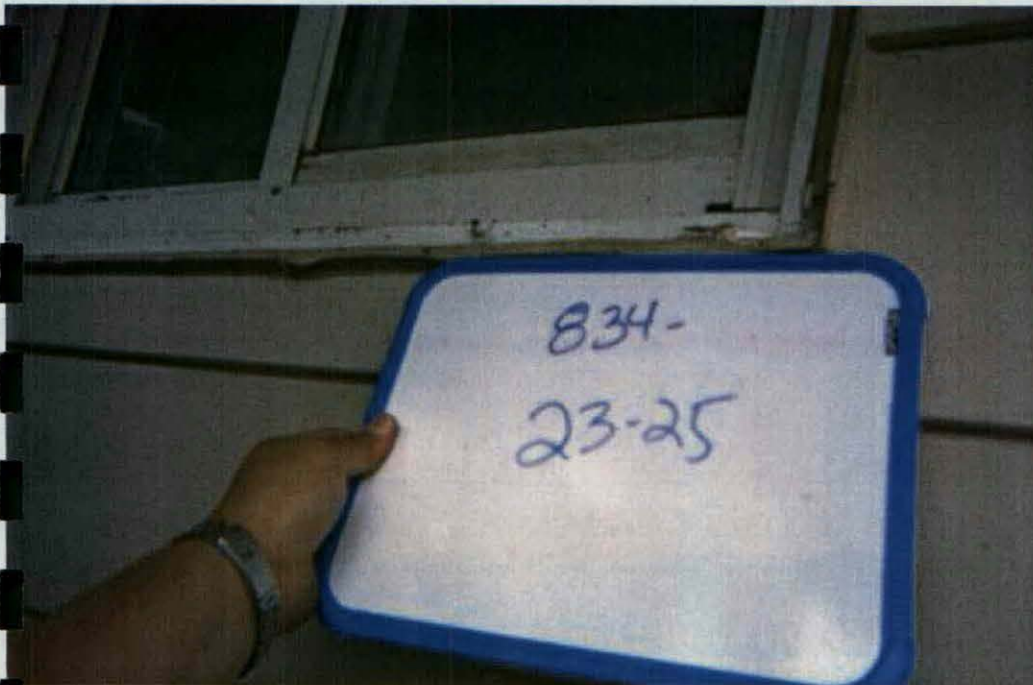 834-
23-25